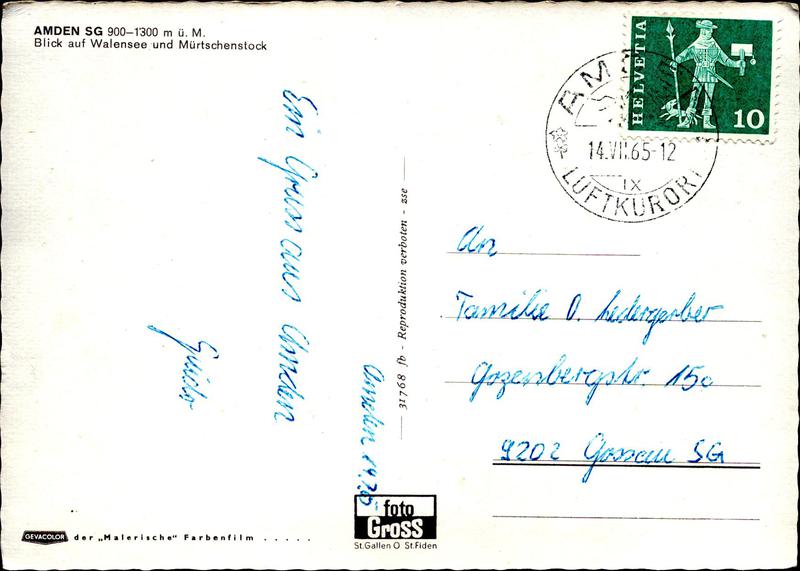 AMDEN SG 900–1300 m ü. M.
Blick auf Walensee und Mürtschenstock
HELVETIA
10
AM
14.VII.65-12
IX
LUFTKURORT
Ein Gruss aus Amden
Guido
Amden 14.7.65
31768 fb - Reproduktion verboten - zse
An
Familie O. Ledergerber
Gozenbergstr. 15c
9202 Gossau SG
foto
Gross
St.Gallen O St.Fiden
GEVACOLOR der „Malerische" Farbenfilm . . . . .